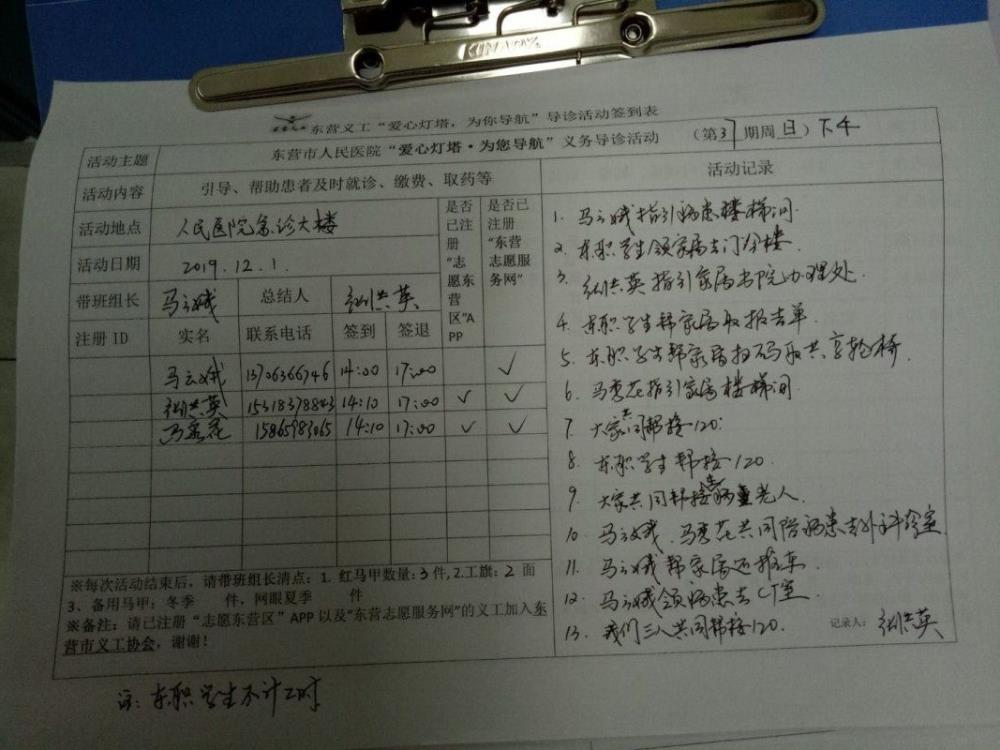 东营义工“爱心灯塔，为你导航”导诊活动签到表
活动主题 东营市人民医院“爱心灯塔·为您导航”义务导诊活动 （第37期周日）下午
活动内容 引导、帮助患者及时就诊、缴费、取药等
活动地点 人民医院急诊大楼
活动日期 2019.12.1.
带班组长 马云娥 总结人 洪英
注册 ID 实名 联系电话 签到 签退
是否已注册“志愿东营区”APP
是否已注册“东营志愿服务网”
马云娥 13706366746 14:00 17:00 ✓
洪英 15318378843 14:10 17:00 ✓ ✓
马秀花 15865983065 14:10 17:00 ✓ ✓
※每次活动结束后，请带班组长清点：1. 红马甲数量：3件，2.工旗：2 面
3、备用马甲：冬季 件，网眼夏季 件
※备注：请已注册“志愿东营区”APP 以及“东营志愿服务网”的义工加入东
营市义工协会，谢谢！
活动记录
1. 马云娥指引病患楼梯间
2. 东职学生领家属去门诊楼.
3. 洪英指引家属出院办理处
4. 东职学生帮家属取报告单.
5. 东职学生帮家属扫码取共享轮椅.
6. 马秀花指引家属楼梯间
7. 大家共同帮接120.
8. 东职学生帮接120.
9. 大家共同帮接病重老人.
10. 马云娥、马秀花共同陪病患去外科诊室
11. 马云娥帮家属还推车.
12. 马云娥领病患去CT室.
13. 我们三人共同帮接120.
记录人： 洪英
注：东职学生不计工时